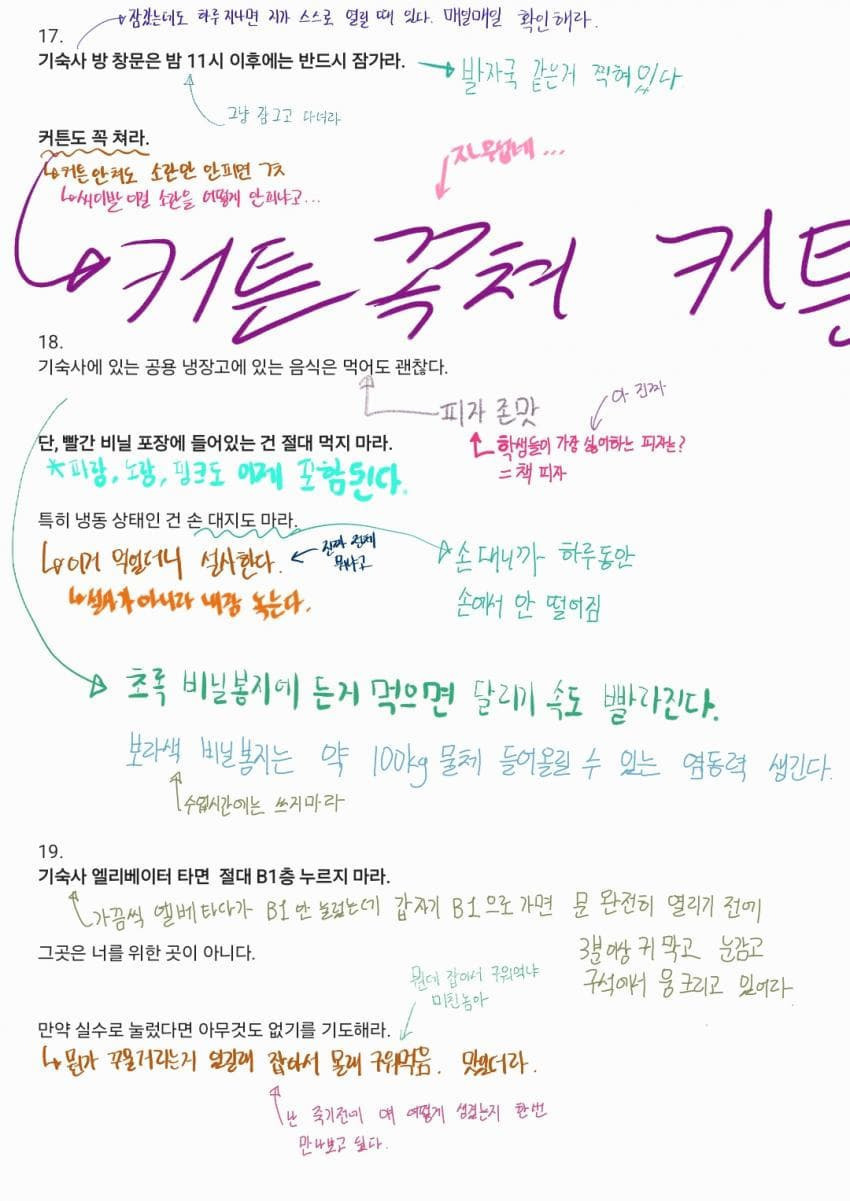 잠겼는데도 하루 지나면 지가 스스로 열릴 때 있다. 매일매일 확인해라.
17.
기숙사 방 창문은 밤 11시 이후에는 반드시 잠가라.
발자국 같은거 찍혀있다
그냥 잠그고 다녀라
커튼도 꼭 쳐라.
커튼 안쳐도 소란만 안피면 ㄱㅊ
씨이발 이걸 소란을 어떻게 안피냐고...
지우네...
커튼 꼭쳐 커튼
18.
기숙사에 있는 공용 냉장고에 있는 음식은 먹어도 괜찮다.
피자 존맛
아 진짜
단, 빨간 비닐 포장에 들어있는 건 절대 먹지 마라.
학생들이 가장 싫어하는 피자는?
= 책 피자
*파랑, 노랑, 핑크도 이제 포함된다.
특히 냉동 상태인 건 손 대지도 마라.
이거 먹었더니 설사한다.
진짜 정체
뭐냐고
손 대니까 하루동안
손에서 안 떨어짐
설사가 아니라 내장 녹는다.
초록 비닐봉지에 든거 먹으면 달리기 속도 빨라진다.
보라색 비닐봉지는 약 100kg 물체 들어올릴 수 있는 염동력 생긴다.
수업시간에는 쓰지마라
19.
기숙사 엘리베이터 타면 절대 B1층 누르지 마라.
가끔씩 엘베 타다가 B1 안 눌렀는데 갑자기 B1으로 가면 문 완전히 열리기 전에
3분이상 귀 막고 눈감고
구석에서 웅크리고 있어라
그곳은 너를 위한 곳이 아니다.
뭔데 잡아서 구워먹냐
미친놈아
만약 실수로 눌렀다면 아무것도 없기를 기도해라.
뭔가 꾸물거리는거 있길래 잡아서 몰래 구워먹음. 맛있더라.
난 죽기전에 얘 어떻게 생겼는지 한번
만나보고 싶다.